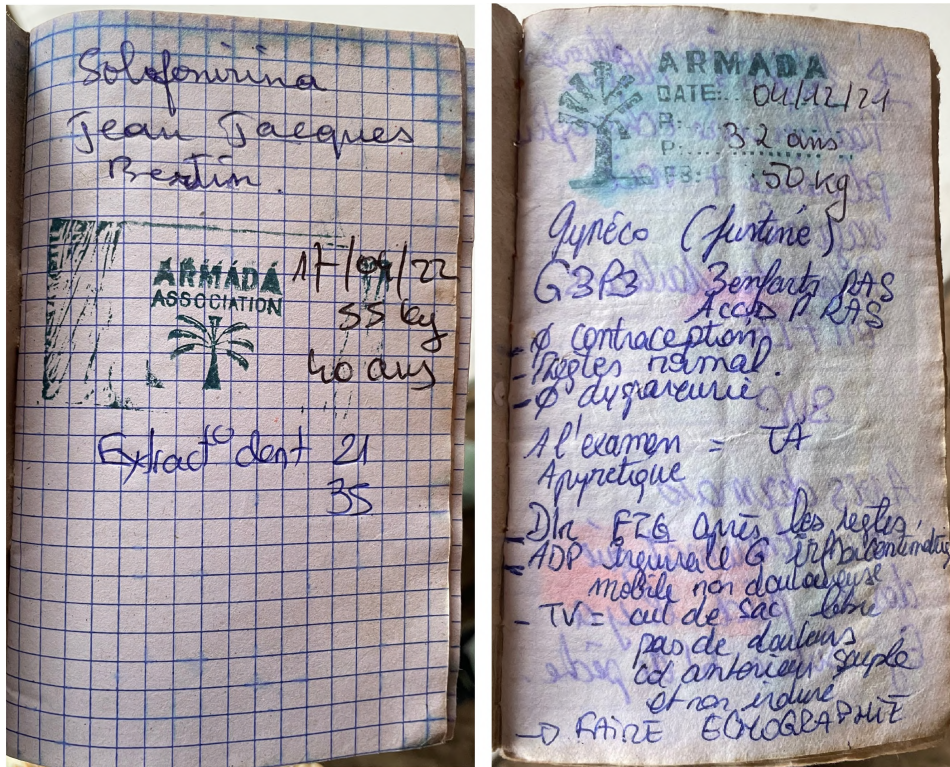 Solofonirina
Jean Jacques
Bertin.
ARMADA
ASSOCIATION
17/09/22
55 kg
40 ans
Extract° dent 21
35
ARMADA
DATE: 04/12/21
P: 32 ans
50 kg
Gynéco (Justine)
G3P3 3 enfants RAS
Accts RAS
- Ø contraception
- Règles normal.
- Ø dyspareunie.
A l'examen = TA
Apyretique
- Dlr FIG après les règles,
- ADP inguinale G infracentimétrique
mobile non douloureuse
- TV = cul de sac libre
pas de douleurs
col antérieur souple
et non induré
-> FAIRE ECHOGRAPHIE